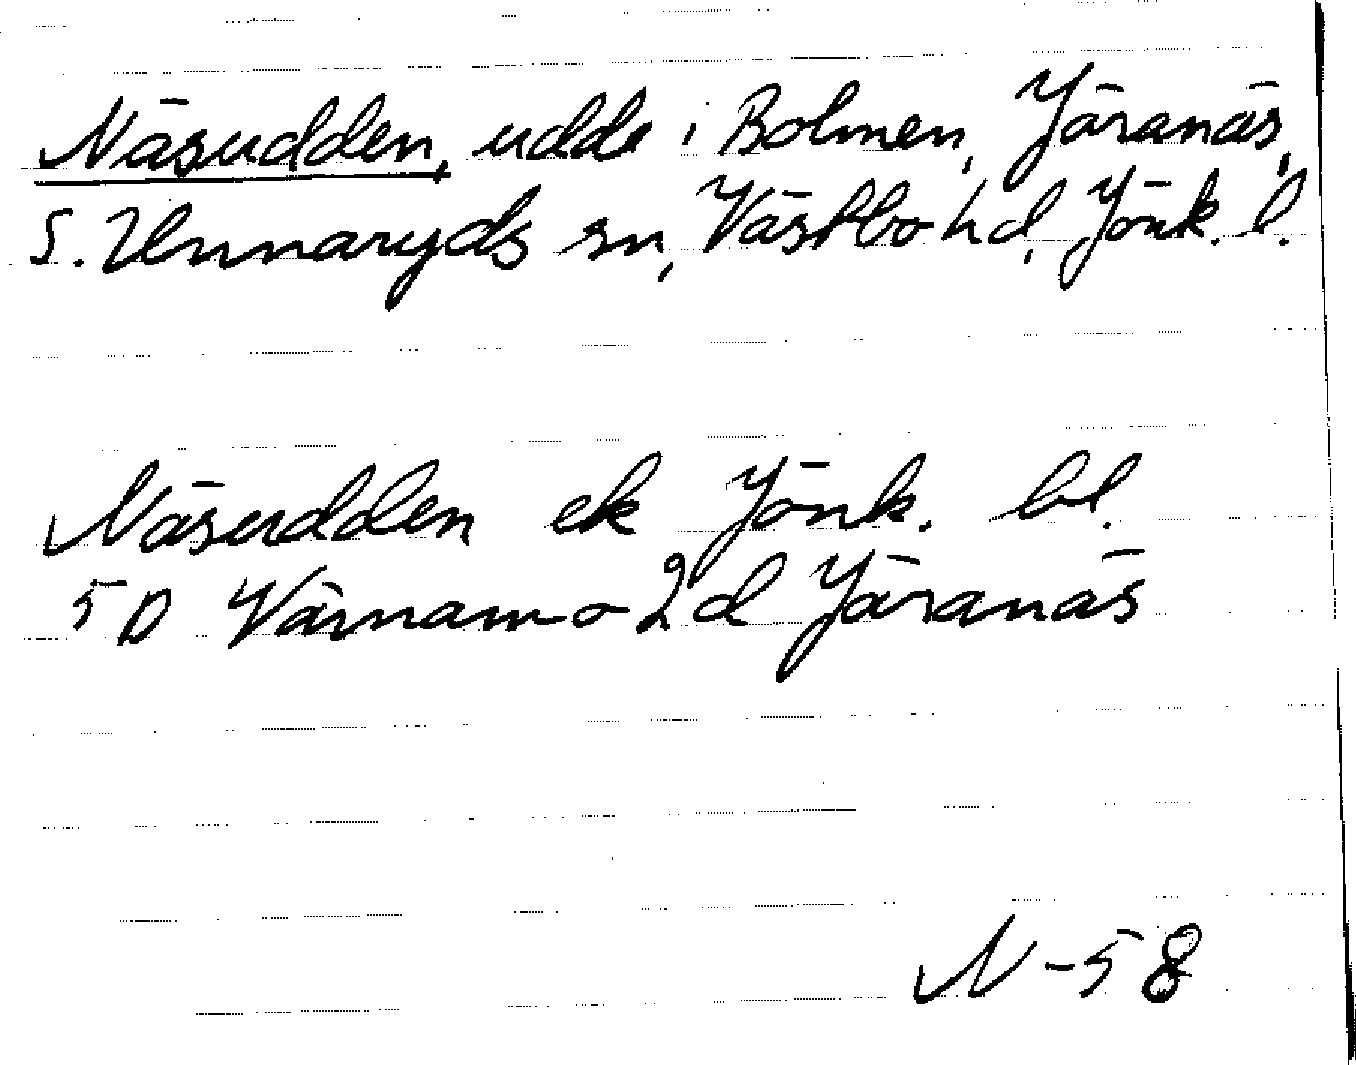 Näsudden, udde i Bolmen, Järanäs,
S. Unnaryds sn, Västbo hd, Jönk. l.
Näsudden ek Jönk. bl.
5D Värnamo 2d Järanäs
N-58